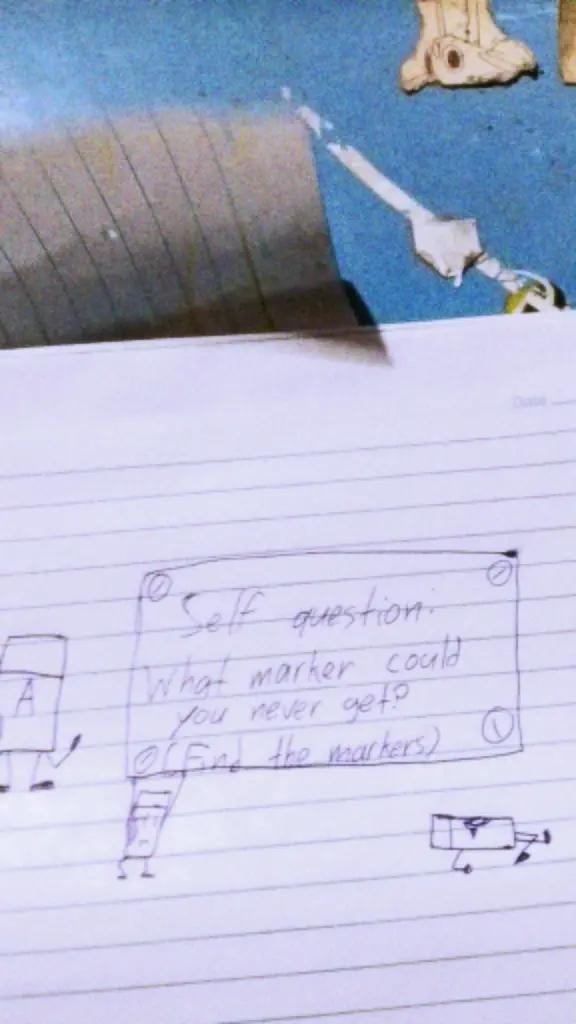 Date
Self question:
What marker could
you never get?
(Find the markers)
A